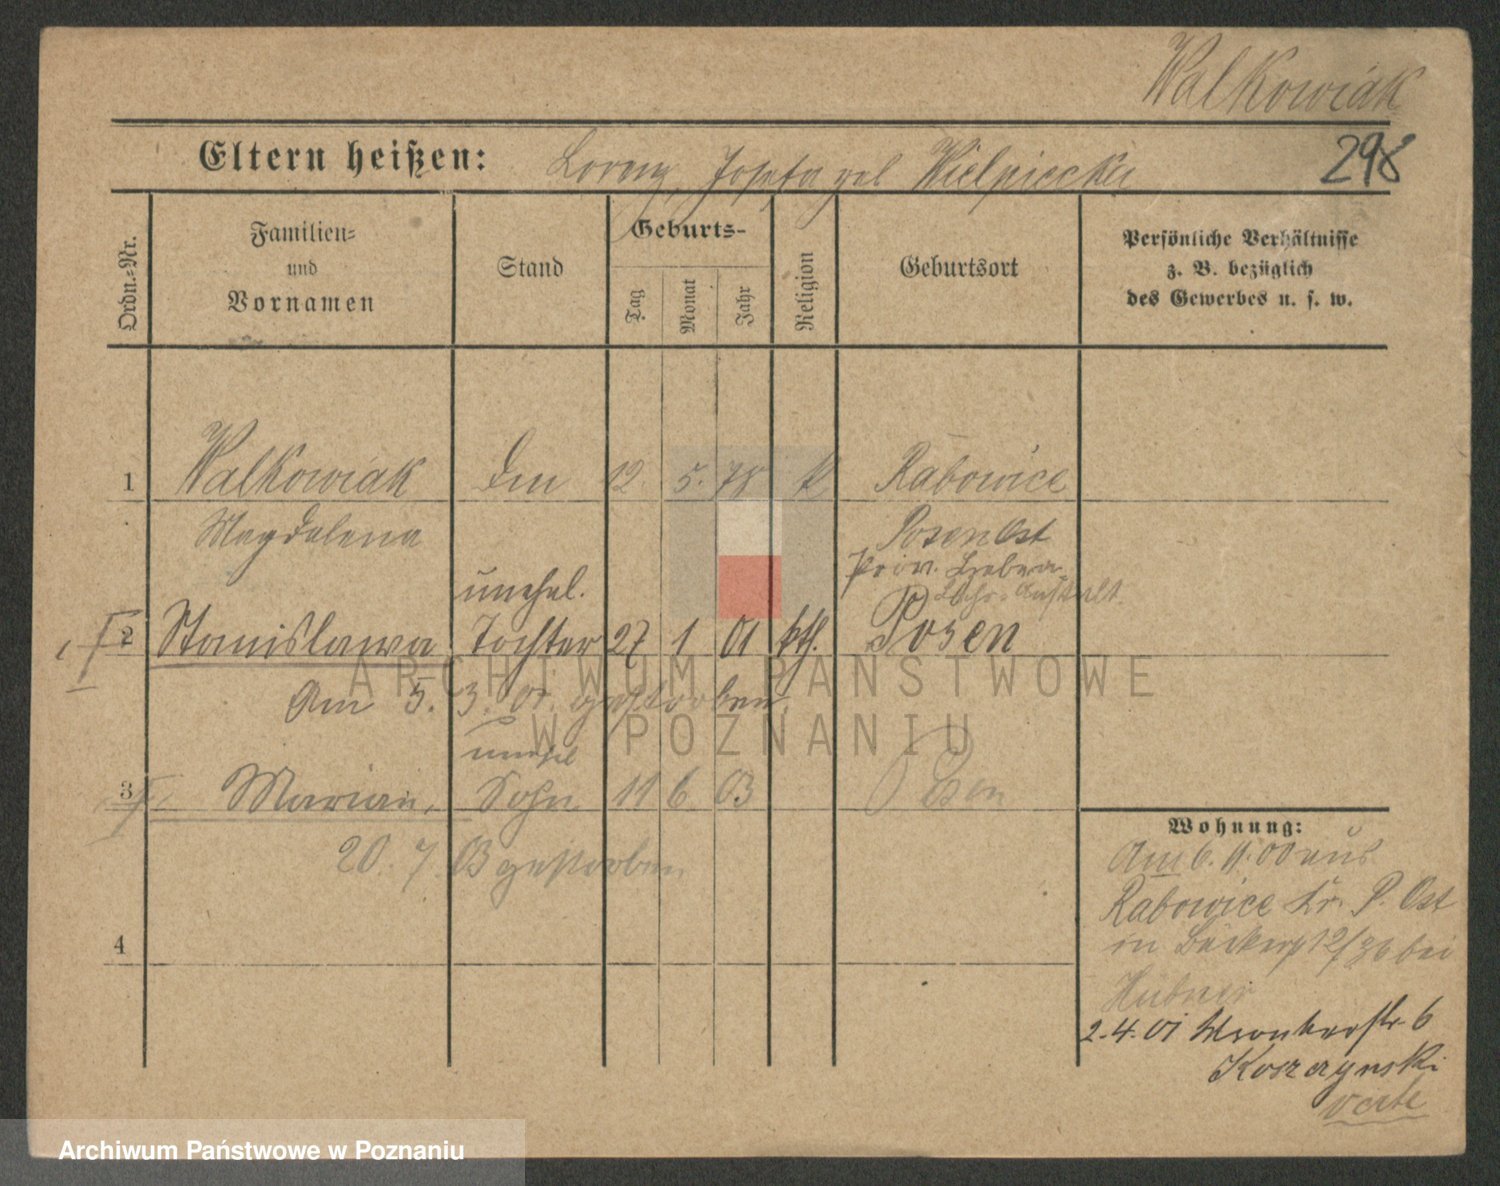 Walkowiak
Eltern heißen: Lorenz, Josefa geb Wielpiecka
298
Ordn.-Nr.
Familien-
und
Vornamen
Stand
Geburts-
Tag
Monat
Jahr
Religion
Geburtsort
Persönliche Verhältnisse
z. B. bezüglich
des Gewerbes u. s. w.
1 Walkowiak 12. 5. 78 k Rabowice
Magdalena
Posen Ost
Prov. Hebam.
Lehr-Anstalt
unehel.
2 Stanislawa Tochter 27 1 01 kth. Posen
Am 5. 3. 01. gestorben.
unehel
3 Marian, Sohn 11 6 03 Posen
20. 7. 03 gestorben
4
Wohnung:
Am 6. 11. 00 aus
Rabowice Kr. P. Ost
in Bäckerg 12/36 bei
Hübner
2. 4. 01 Wronkerstr. 6
Koszczynski
verte
ARCHIWUM PAŃSTWOWE
W POZNANIU
Archiwum Państwowe w Poznaniu